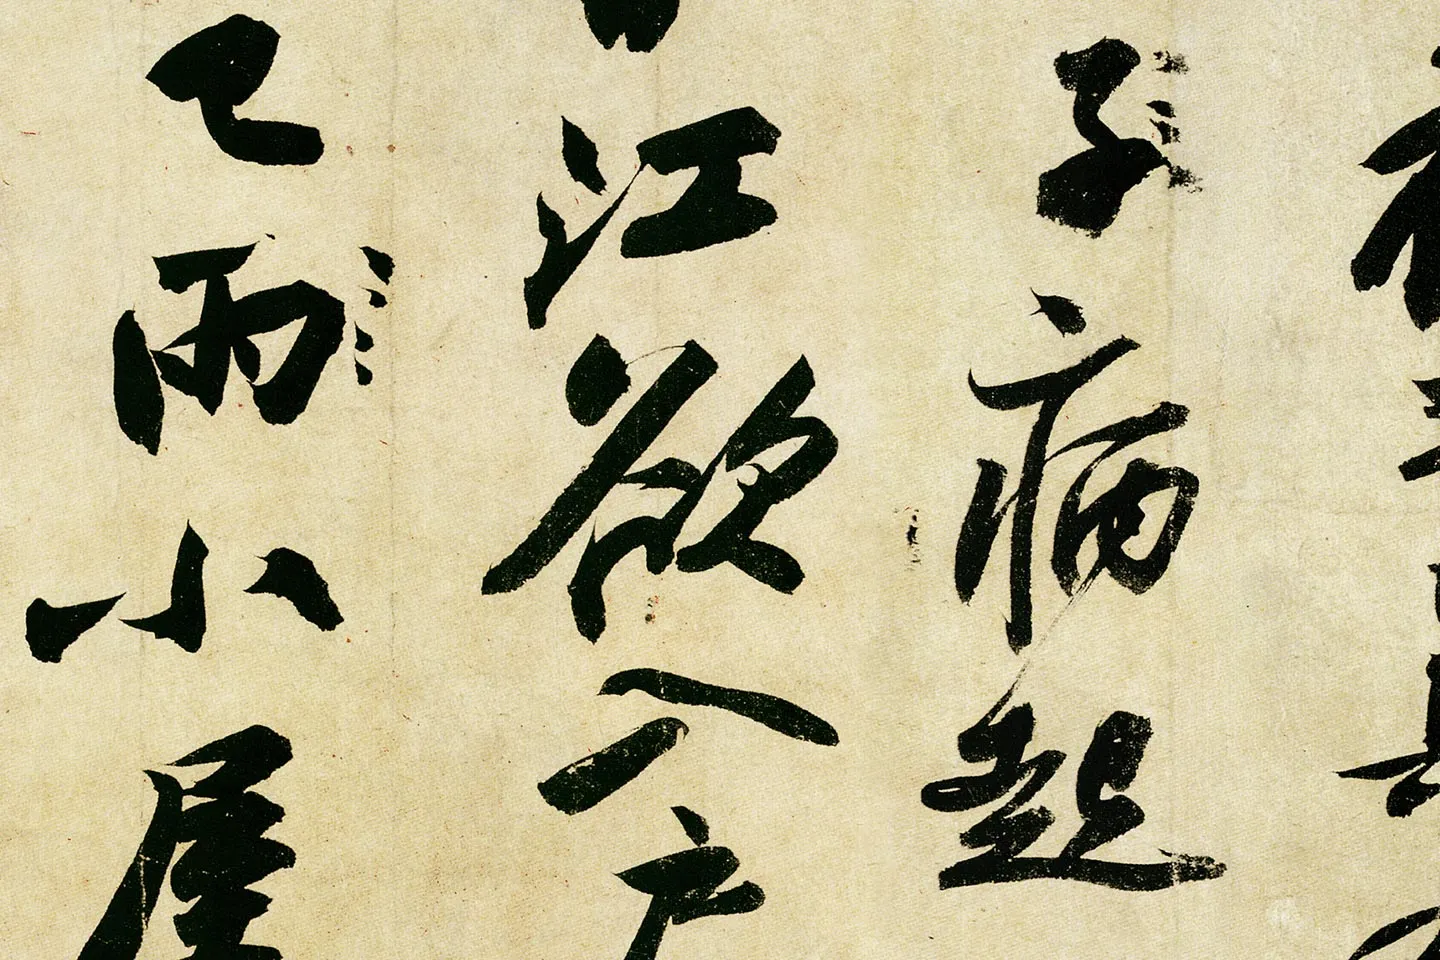 子病起
江欲入戶
已雨小屋